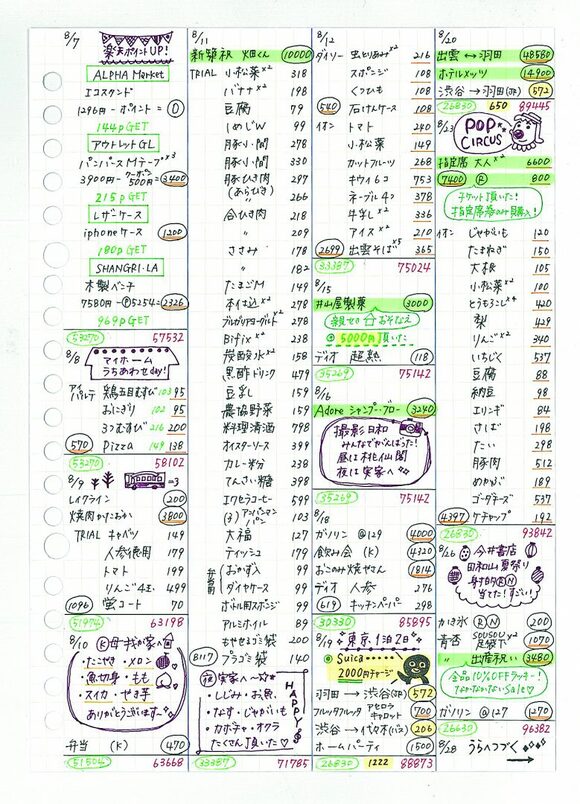 8/7
楽天ポイントUP!
ALPHA Market
エコスタンド
1296円-ポイント=0
144p GET
アウトレットGL
パンパースMテープ×3
3900円-クーポン500円=3400
215p GET
レザーケース
iphoneケース 1200
180p GET
SHANGRI-LA
木製ベンチ
7580円-Ⓟ5254=2326
969p GET
53270 57532
8/8
マイホーム
うちあわせday!
鶏五目むすび 103 95
おにぎり 102 95
3つむすび 216 200
570 Pizza 149 138
53270 58102
8/9
レイクライン 200
焼肉かたおか 3800
TRIAL キャベツ 149
人参徳用 179
トマト 199
りんご4玉 499
1096 蛍コート 70
51974 63198
8/10
Ⓚ母 我が家へ
・たこやき ・メロン
・魚切身 ・もも
・スイカ ・やき芋
ありがとうございます〜
弁当 (K) 470
51504 63668
8/11
新築祝 畑くん 10000
TRIAL 小松菜×2 318
バナナ×2 198
豆腐 79
しめじW 99
豚小間 278
豚小間 330
豚ひき肉 297
(あらびき)
〃 266
合びき肉 218
〃 209
ささみ 178
〃 182
たまごM 149
本仕込×2 278
ブルガリアヨーグルト×2 278
Bifix×2 238
炭酸水×2 158
黒酢ドリンク 479
豆乳 159
農協野菜 159
料理清酒 798
オイスターソース 399
カレー粉 238
てんさい糖 398
エクセラコーヒー 599
(3)アンパンマンパン 103
大福 127
ティッシュ 179
弁当
おかず入 99
ダイヤケース 99
ボトル用スポンジ 99
アルミホイル 89
もやせるゴミ袋 200
8117 プラゴミ袋 140
実家へ
・しじみ・お魚
・なす・じゃがいも
・カボチャ・オクラ
たくさん頂いた♡
HAPPY
33387 71785
8/12
ダイソー 虫とりあみ×2 216
スポンジ 108
くつひも 108
540 石けんケース 108
イオン トマト 290
小松菜 149
カットフルーツ 268
キウイ6コ 753
ネーブル4コ 378
牛乳×2 336
アイス×2 210
2699 出雲そば×5 365
33387 75024
8/15
井山屋製菓 3000
親せき おそなえ
5000円頂いた
デオ 超熟 118
35269 75142
8/16
Adore シャンプー・ブロー 3240
撮影日和
みんなでがんばった!
昼は桃仙閣
夜は実家へ
35269 75142
8/18
ガソリン @129 4000
飲み会 (K) 4320
おこのみ焼やさん 1814
デオ 人参 276
619 キッチンペーパー 298
30330 85895
8/19
東京1泊2日
Suica
2000円チャージ
羽田→渋谷 572
フルッタフルッタ アセロラキャロット 700
渋谷→代々木(バス) 206
ホームパーティ 1500
26830 1222 88873
8/20
出雲↔羽田 48580
ホテルメッツ 14900
渋谷→羽田 572
26830 650 89445
8/23
POP CIRCUS
指定席 大人×2 6600
7400 Ⓡ 800
チケット頂いた!
指定席券のみ購入!
イオン じゃがいも 120
たまねぎ 150
大根 105
小松菜×2 100
とうもろこし×4 420
梨 429
りんご×2 340
いちじく 537
豆腐 88
納豆 98
エリンギ 84
さば 198
たい 298
豚肉 512
めかぶ 189
ゴーダチーズ 537
4397 ケチャップ 192
26830 93842
8/26
今井書店
田和山夏祭り
射的ⓇⓃ
当てた!すごい!
かき氷 ⓇⓃ 200
青杏 SOUSOU足袋下×2 1070
〃 出産祝い 3480
全品10%OFFラッキー!
なかなかないSale♡
ガソリン @127 1270
26660 96382
8/28 うらへつづく